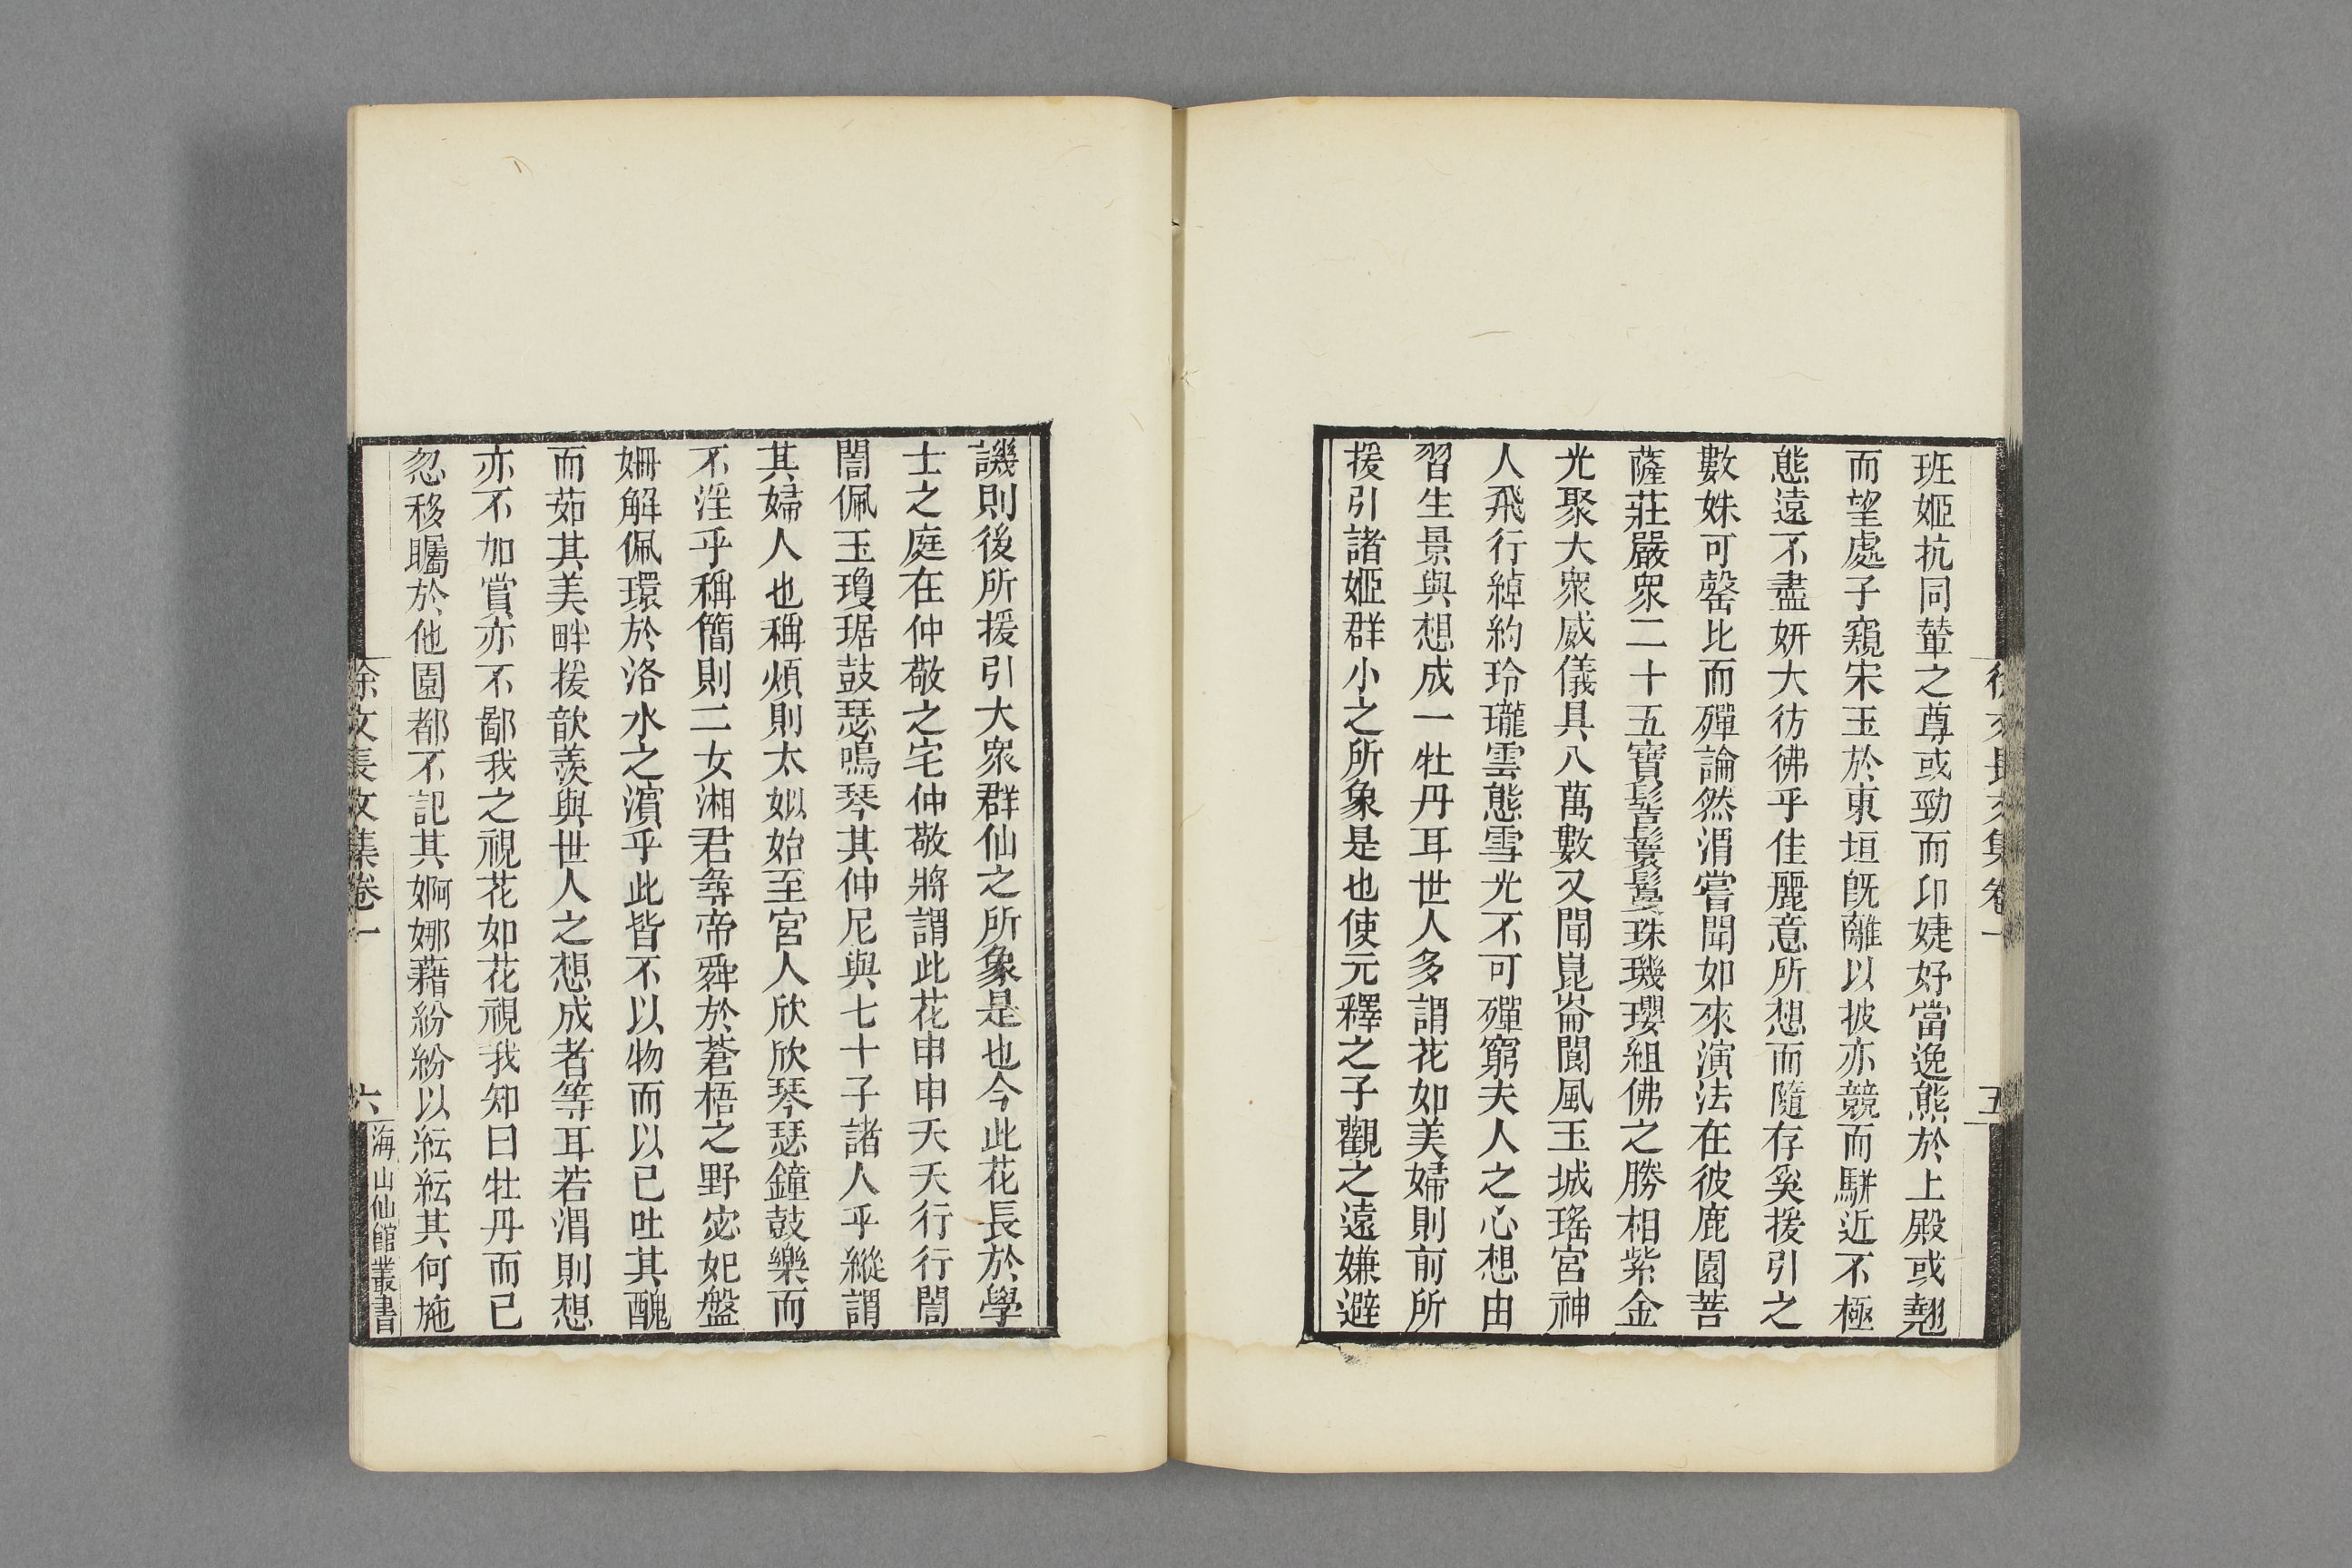 班姬抗同輦之尊或勁而卬婕妤當逸熊於上殿或翹
而望處子窺宋玉於東垣旣離以披亦競而駢近不極
態遠不盡妍大彷彿乎佳麗意所想而隨存奚援引之
數姝可罄比而殫論然渭嘗聞如來演法在彼鹿園菩
薩莊嚴衆二十五寶髻鬟鬘珠璣瓔組佛之勝相紫金
光聚大衆威儀具八萬數又聞崑崙閬風玉城瑤宮神
人飛行綽約玲瓏雲態雪光不可殫窮夫人之心想由
習生景與想成一牡丹耳世人多謂花如美婦則前所
援引諸姬群小之所象是也使元釋之子觀之遠嫌避
譏則後所援引大衆群仙之所象是也今此花長於學
士之庭在仲敬之宅仲敬將謂此花申申夭夭行行誾
誾佩玉瓊琚鼓瑟鳴琴其仲尼與七十子諸人乎縱謂
其婦人也稱煩則太姒始至宮人欣欣琴瑟鐘鼓樂而
不淫乎稱簡則二女湘君辠帝舜於蒼梧之野宓妃盤
姍解佩環於洛水之濱乎此皆不以物而以已吐其醜
而茹其美畔援歆羨與世人之想成者等耳若渭則想
亦不加賞亦不鄙我之視花如花視我知曰牡丹而已
忽移矚於他園都不記其婀娜藉紛紛以紜紜其何施
徐文長文集卷一
六
海山仙館叢書